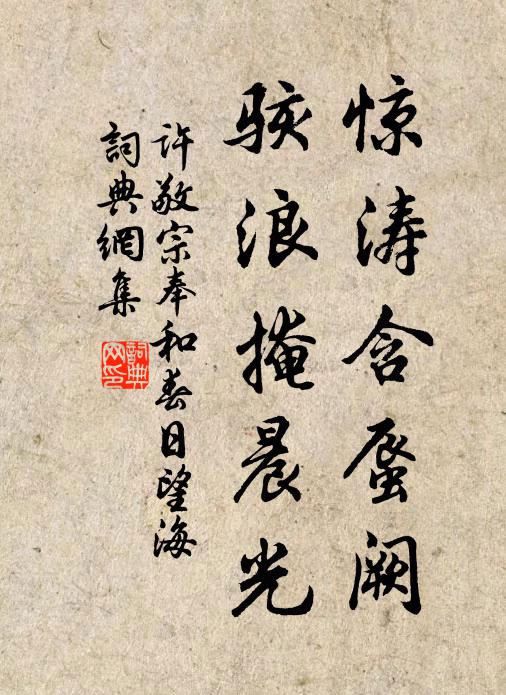 惊涛含蜃阙
骇浪掩晨光
許敬宗奉和春日望海
詞典網集
詞典网印